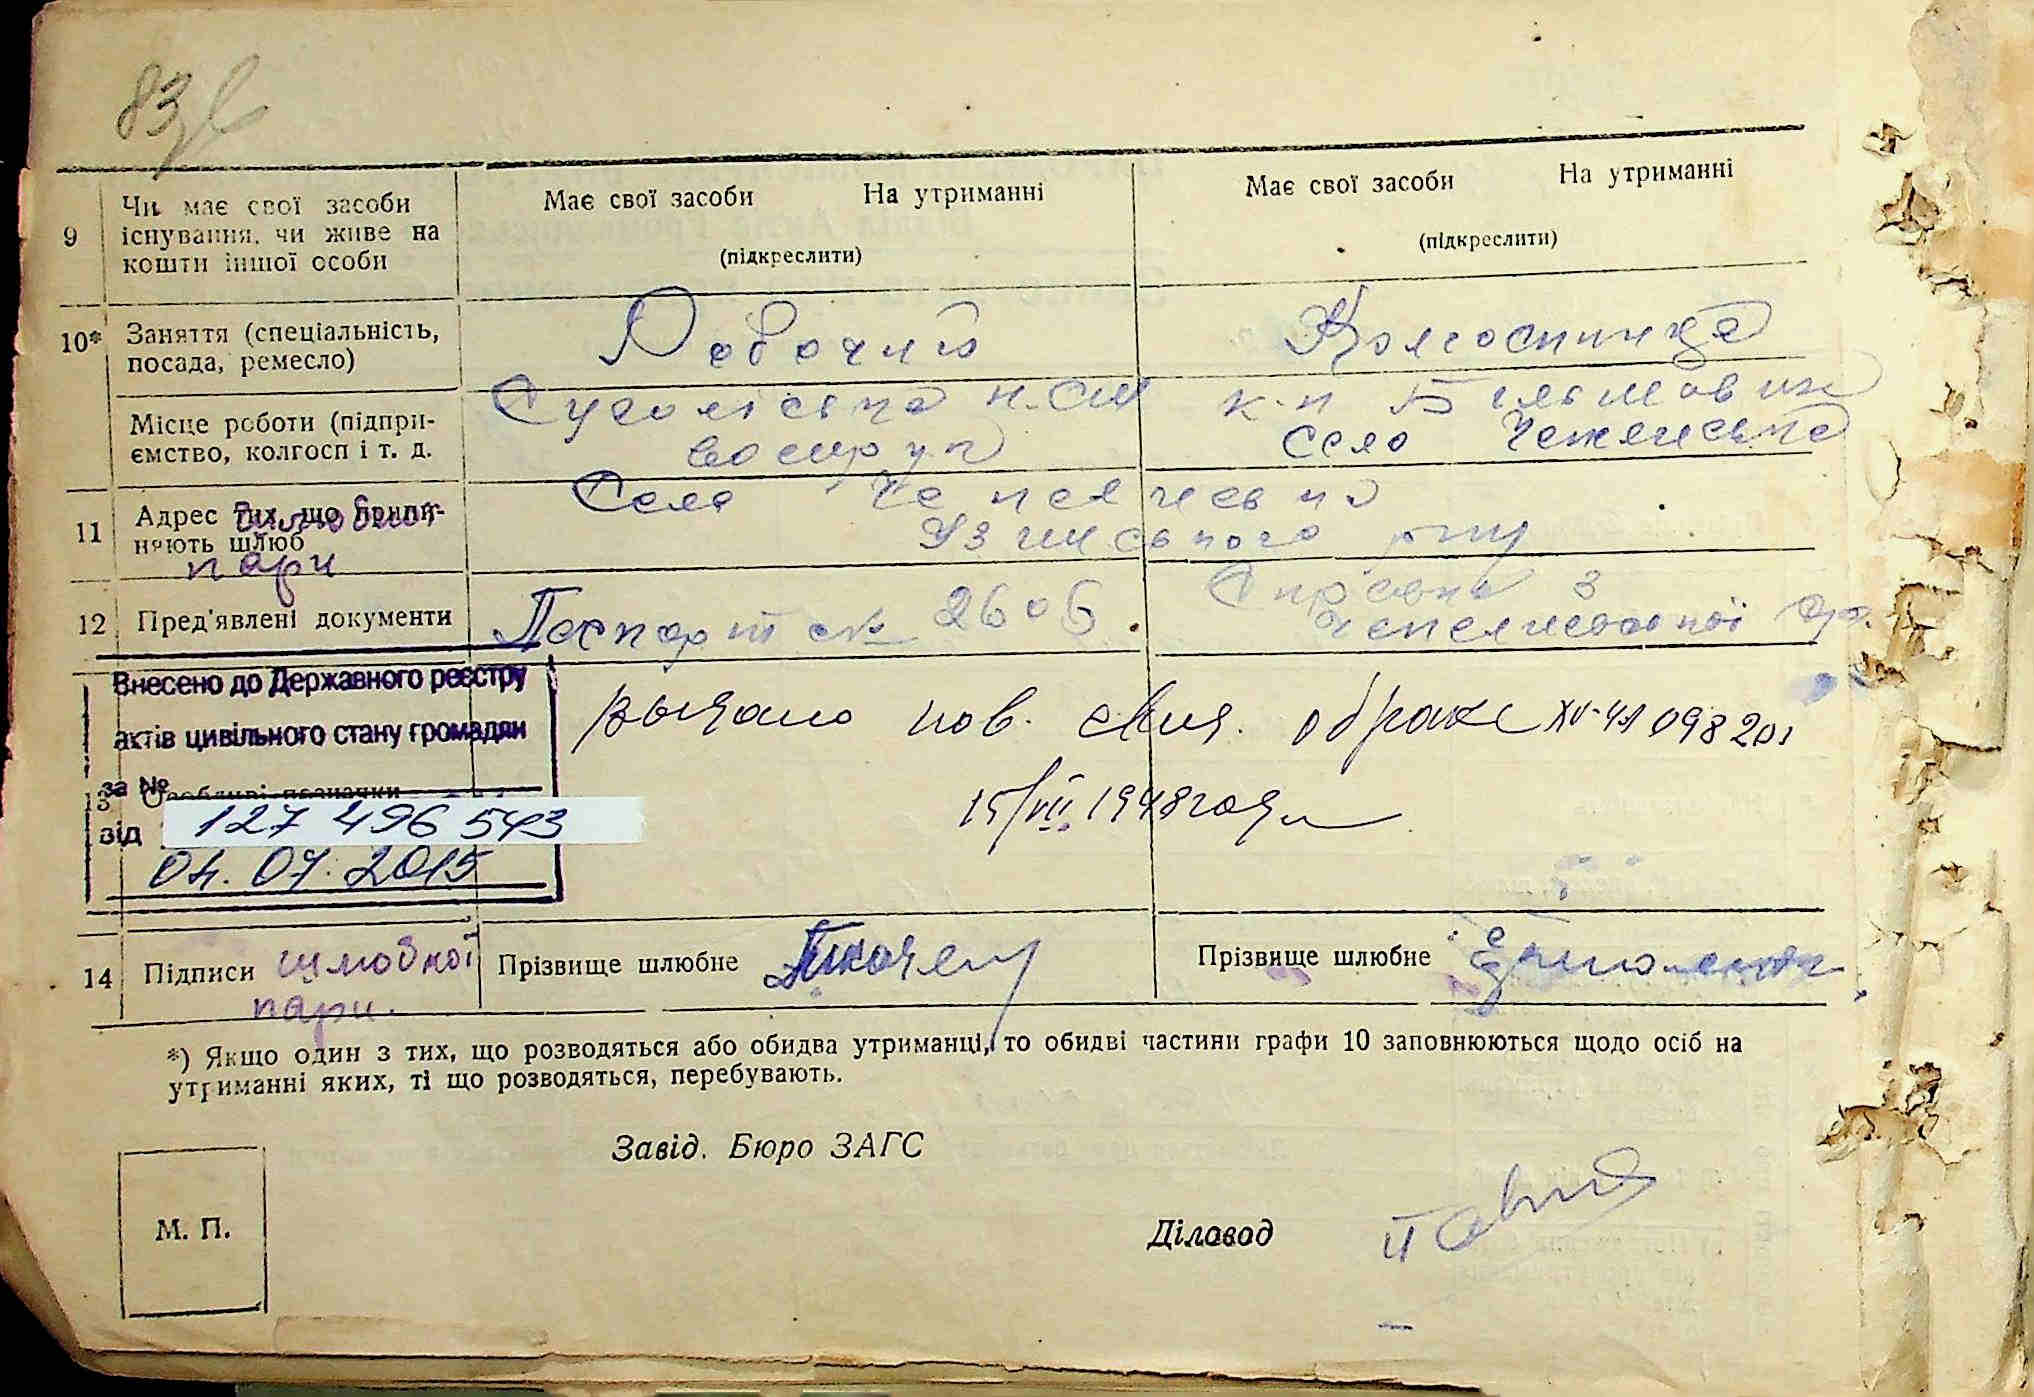 83
9 Чи має свої засоби існування, чи живе на кошти іншої особи
Має свої засоби На утриманні
(підкреслити)
Має свої засоби На утриманні
(підкреслити)
10* Заняття (спеціальність, посада, ремесло)
Робочий
Колгоспниця
Місце роботи (підприємство, колгосп і т. д.
к-п Більшовик
село
11 Адрес тих, що припиняють шлюб
шлюбної
пари
Село
Узинського р-ну
12 Пред'явлені документи
Паспорт 2606.
Справка з
Внесено до Державного реєстру
актів цивільного стану громадян
за №
від 127 496 543
04.07.2015
13 Особливі позначки
Выдано пов. свид. о браке 098201
15/VII 1948 года
14 Підписи шлюбної
пари.
Прізвище шлюбне
Прізвище шлюбне
*) Якщо один з тих, що розводяться або обидва утриманці, то обидві частини графи 10 заповнюються щодо осіб на
утриманні яких, ті що розводяться, перебувають.
Завід. Бюро ЗАГС
М. П.
Діловод